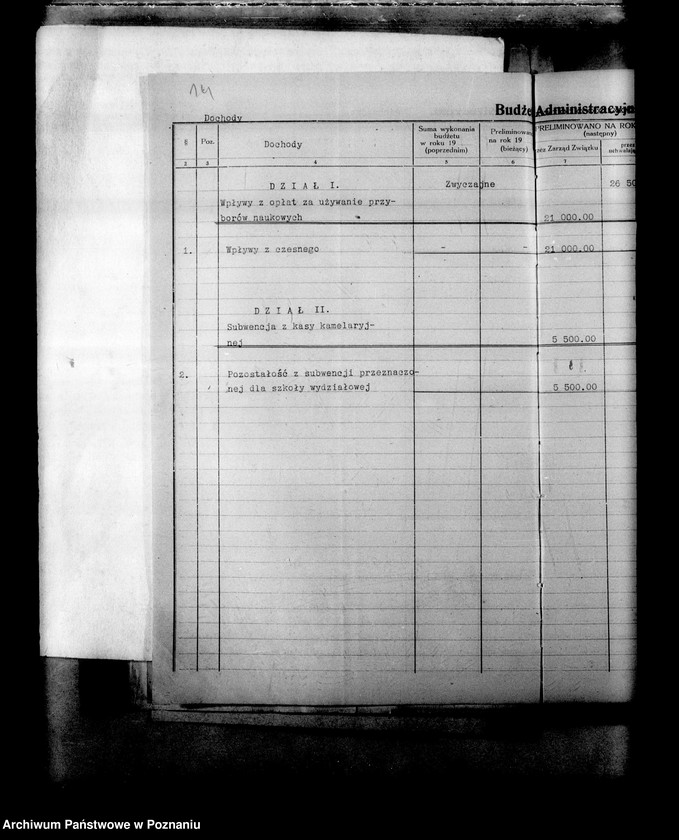 141
Budże Administracyjn
Dochody
§ Poz. Dochody Suma wykonania budżetu w roku 19 (poprzednim) Preliminowano na rok 19 (bieżący) PRELIMINOWANO NA ROK (następny)
zez Zarząd Związku przez uchwalając
2 3 4 5 6 7
D Z I A Ł I. Zwyczajne 26 50
Wpływy z opłat za używanie przy-
borów naukowych 21 000.00
1. Wpływy z czesnego - - 21 000.00
D Z I A Ł II.
Subwencja z kasy kamelaryj-
nej 5 500.00
2. Pozostałość z subwencji przeznaczo-
nej dla szkoły wydziałowej 5 500.00
Archiwum Państwowe w Poznaniu